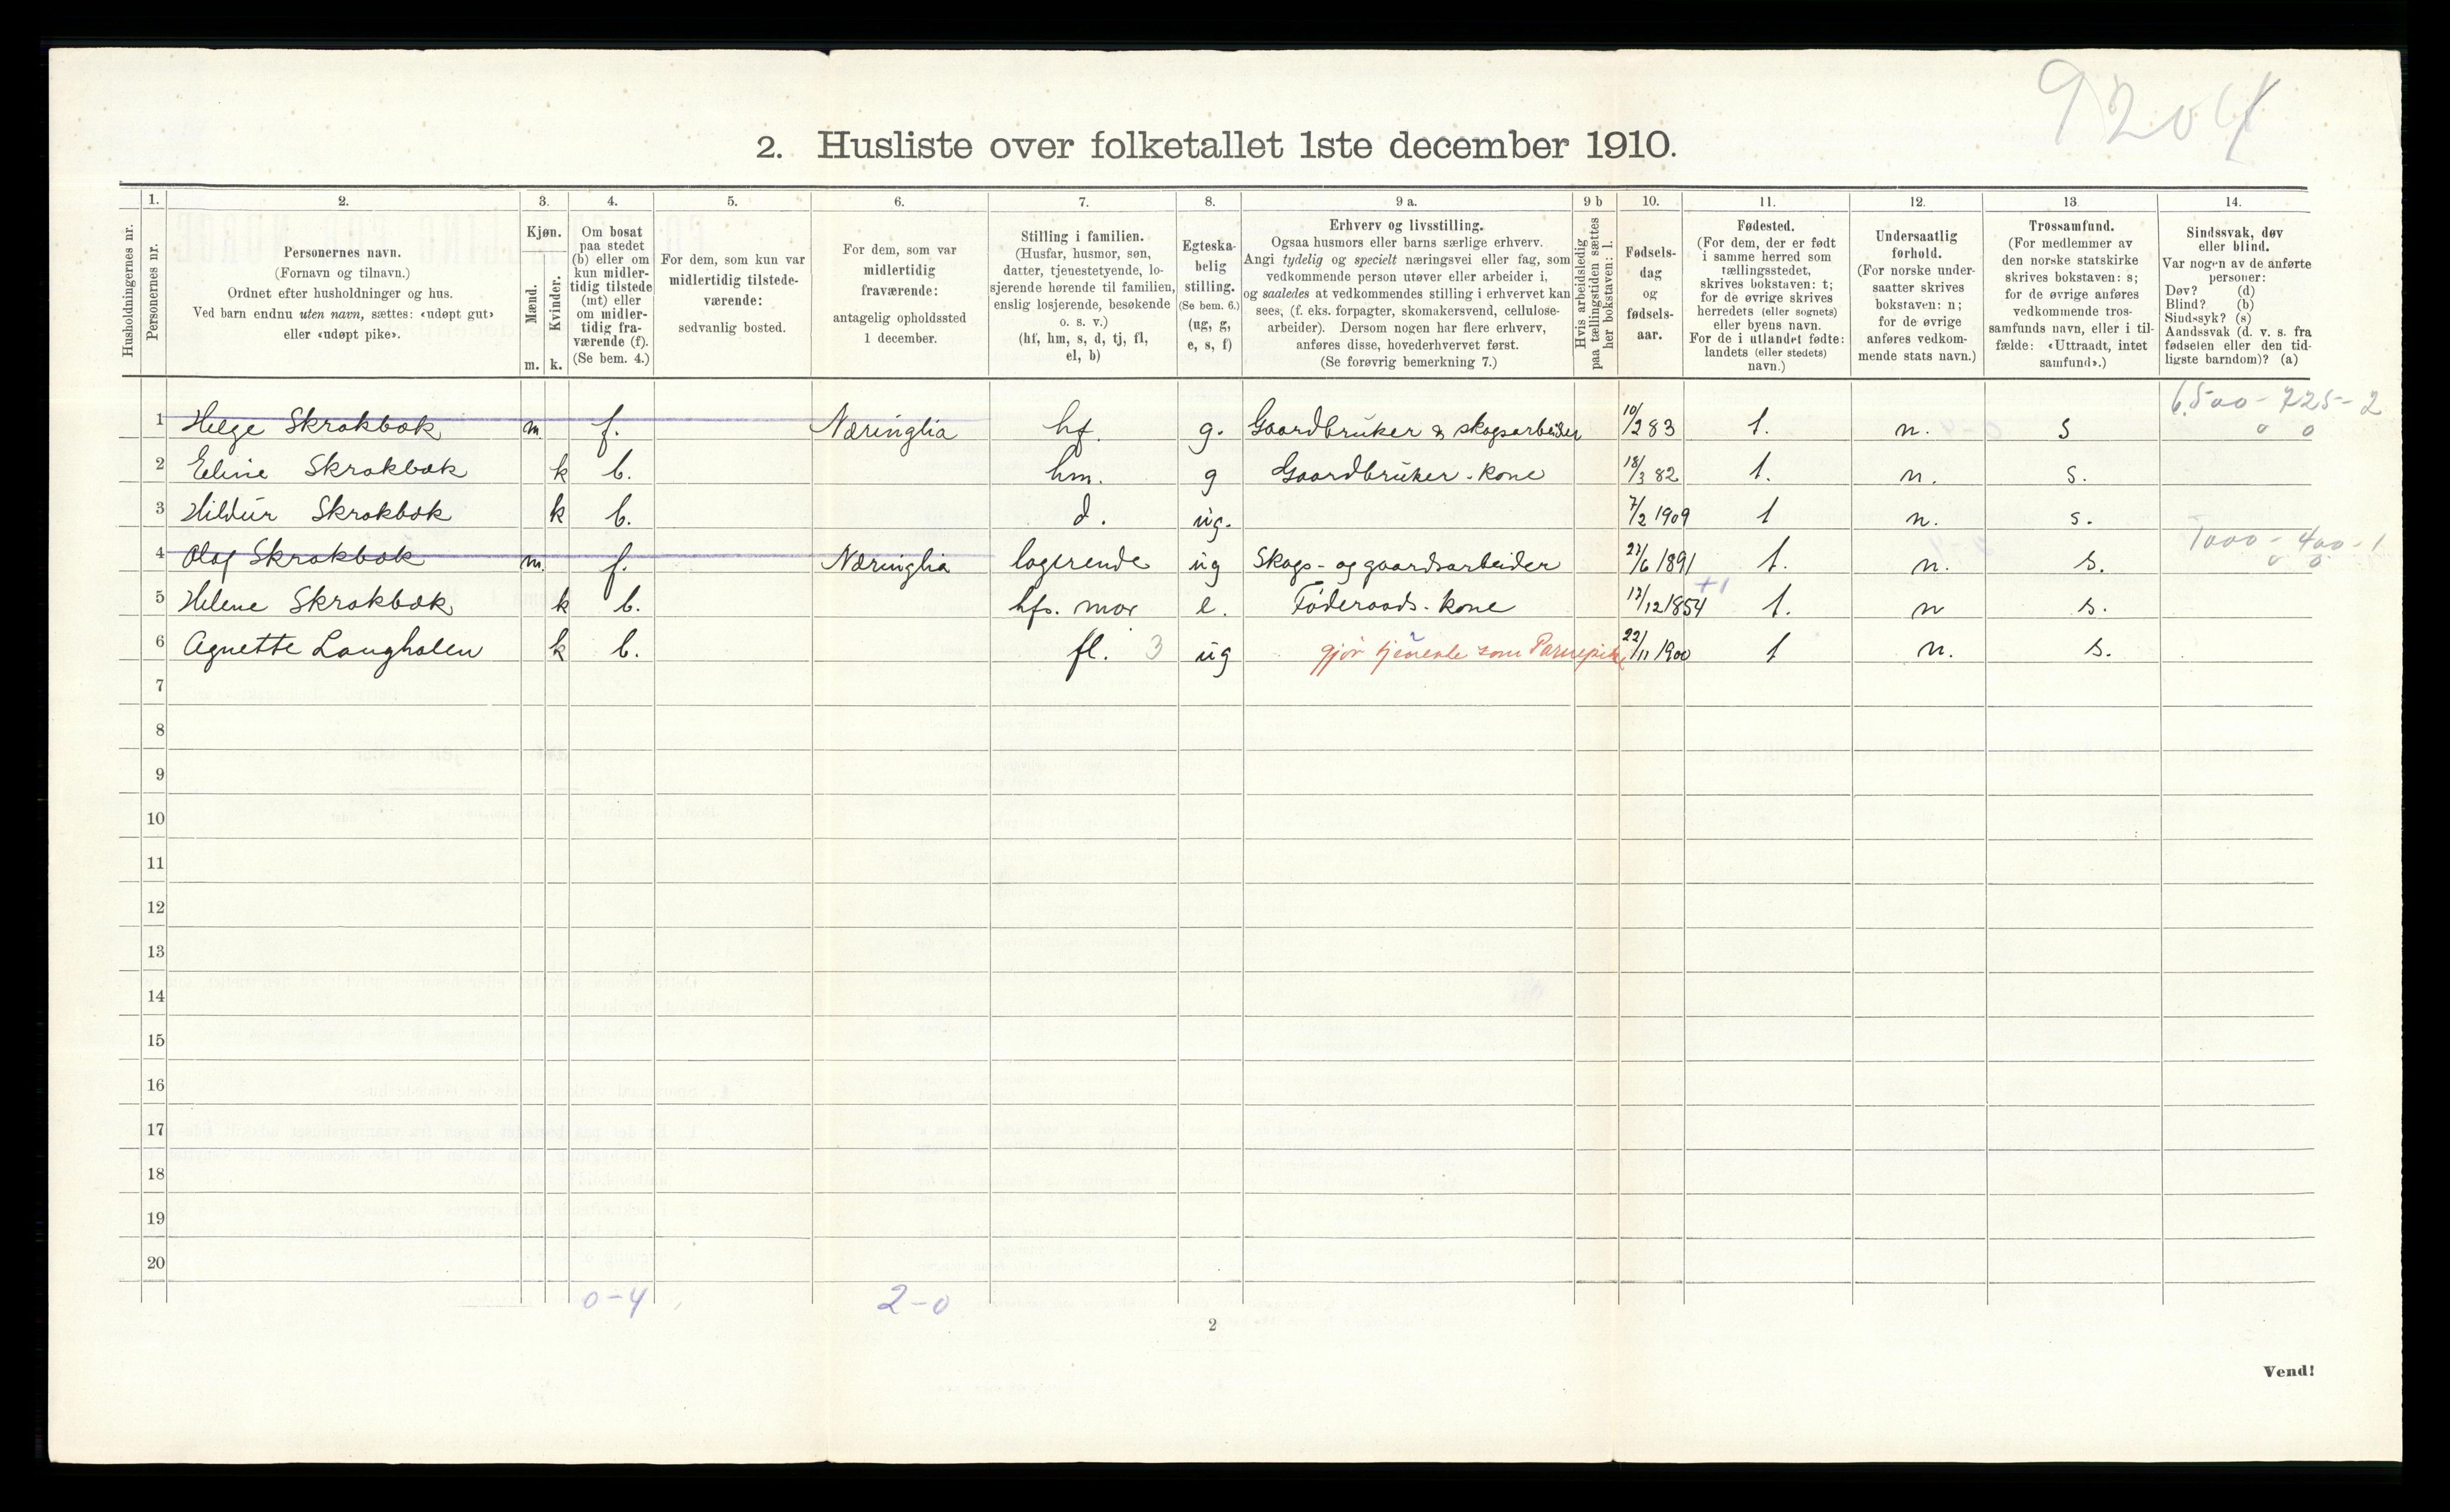 9204
2. Husliste over folketallet 1ste december 1910.
Husholdningernes nr.
1.
Personernes nr.
2.
Personernes navn.
(Fornavn og tilnavn.)
Ordnet efter husholdninger og hus.
Ved barn endnu uten navn, sættes: «udøpt gut»
eller «udøpt pike».
3.
Kjøn.
Mænd.
Kvinder.
m. k.
4.
Om bosat
paa stedet
(b) eller om
kun midler-
tidig tilstede
(mt) eller
om midler-
tidig fra-
værende (f).
(Se bem. 4.)
5.
For dem, som kun var
midlertidig tilstede-
værende:
sedvanlig bosted.
6.
For dem, som var
midlertidig
fraværende:
antagelig opholdssted
1 december.
7.
Stilling i familien.
(Husfar, husmor, søn,
datter, tjenestetyende, lo-
sjerende hørende til familien,
enslig losjerende, besøkende
o. s. v.)
(hf, hm, s, d, tj, fl,
el, b)
8.
Egteska-
belig
stilling.
(Se bem. 6.)
(ug, g,
e, s, f)
9 a.
Erhverv og livsstilling.
Ogsaa husmors eller barns særlige erhverv.
Angi tydelig og specielt næringsvei eller fag, som
vedkommende person utøver eller arbeider i,
og saaledes at vedkommendes stilling i erhvervet kan
sees, (f. eks. forpagter, skomakersvend, cellulose-
arbeider). Dersom nogen har flere erhverv,
anføres disse, hovederhvervet først.
(Se forøvrig bemerkning 7.)
9 b
Hvis arbeidsledig
paa tællingstiden sættes
her bokstaven: l.
10.
Fødsels-
dag
og
fødsels-
aar.
11.
Fødested.
(For dem, der er født
i samme herred som
tællingsstedet,
skrives bokstaven: t;
for de øvrige skrives
herredets (eller sognets)
eller byens navn.
For de i utlandet fødte:
landets (eller stedets)
navn.)
12.
Undersaatlig
forhold.
(For norske under-
saatter skrives
bokstaven: n;
for de øvrige
anføres vedkom-
mende stats navn.)
13.
Trossamfund.
(For medlemmer av
den norske statskirke
skrives bokstaven: s;
for de øvrige anføres
vedkommende tros-
samfunds navn, eller i til-
fælde: «Uttraadt, intet
samfund».)
14.
Sindssvak, døv
eller blind.
Var nogen av de anførte
personer:
Døv? (d)
Blind? (b)
Sindssyk? (s)
Aandssvak (d. v. s. fra
fødselen eller den tid-
ligste barndom)? (a)
6.500 - 725 - 2
0 0
1 Helge Skrakbæk m. f. Næringlia hf. g. Gaardbruker & skogsarbeider 10/2 83 t. n. s
2 Eeline Skrakbæk k b. hm. g Gaardbruker-kone 18/3 82 t. n. s.
3 Hildur Skrakbæk k b. d. ug. 7/2 1909 t n. s.
1000 - 400 - 1
0 0
4 Olaf Skrakbæk m. f. Næringlia logerende ug Skogs- og gaardsarbeider 27/6 1891 t. n. s.
+1
5 Helene Skrakbæk k b. hfs. mor e. Føderaads-kone 17/12 1854 t. n s.
6 Agnette Langholen k b. fl. 3 ug gjør tjeneste som Barnepike 22/11 1900 t n. s.
7
8
9
10
11
12
13
14
15
16
17
18
19
20
0-4 2-0
2
Vend!